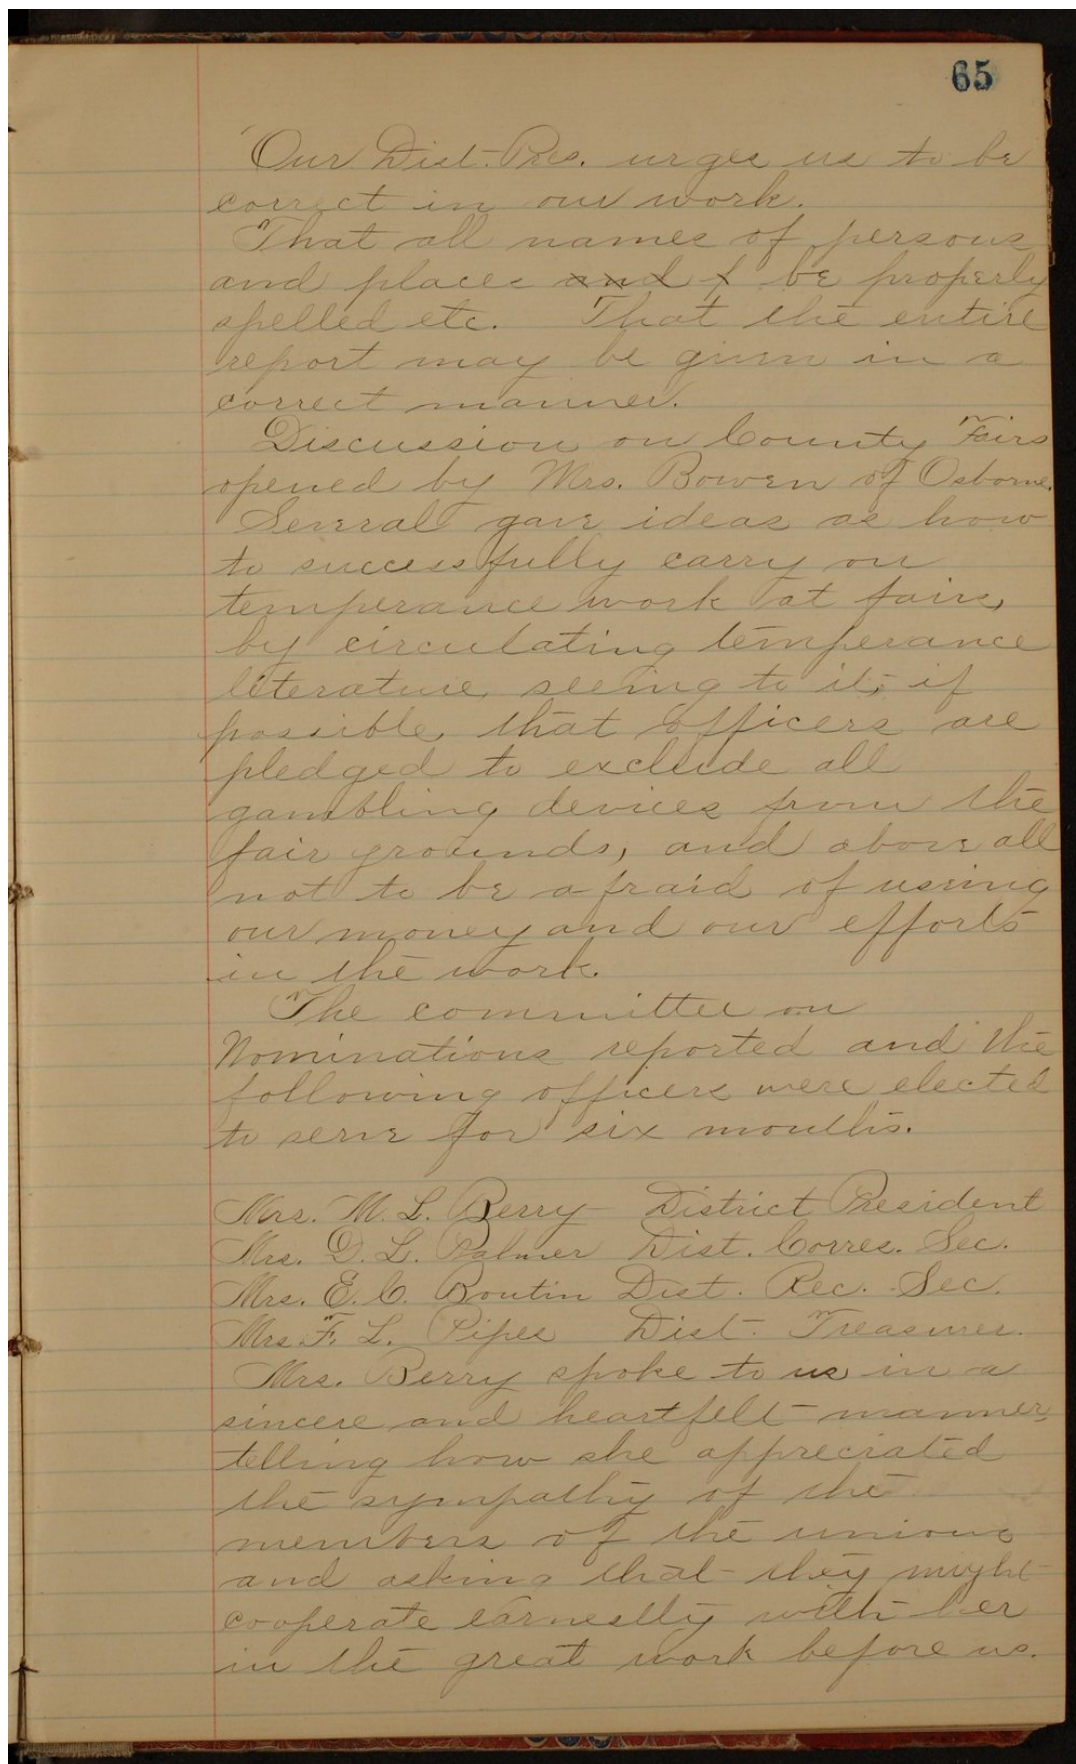 65
Our Dist. Pres. urges us to be
correct in our work.
That all names of persons
and places and f be properly
spelled etc. That the entire
report may be given in a
correct manner.
Discussion on County Fairs
opened by Mrs. Bowen of Osborne.
Several gave ideas as how
to successfully carry on
temperance work at fairs,
by circulating temperance
literature, seeing to it, if
possible, that officers are
pledged to exclude all
gambling devices from the
fair grounds, and above all
not to be afraid of useing
our money and our efforts
in the work.
The committee on
Nominations reported and the
following officers were elected
to serve for six months.
Mrs. M. L. Berry District President
Mrs. D. L. Palmer Dist. Corres. Sec.
Mrs. E. C. Boutin Dist. Rec. Sec.
Mrs. F. L. Pipes Dist. Treasurer.
Mrs. Berry spoke to us in a
sincere and heartfelt manner,
telling how she appreciated
the sympathy of the
members of the unions
and asking that they might
cooperate earnestly with her
in the great work before us.